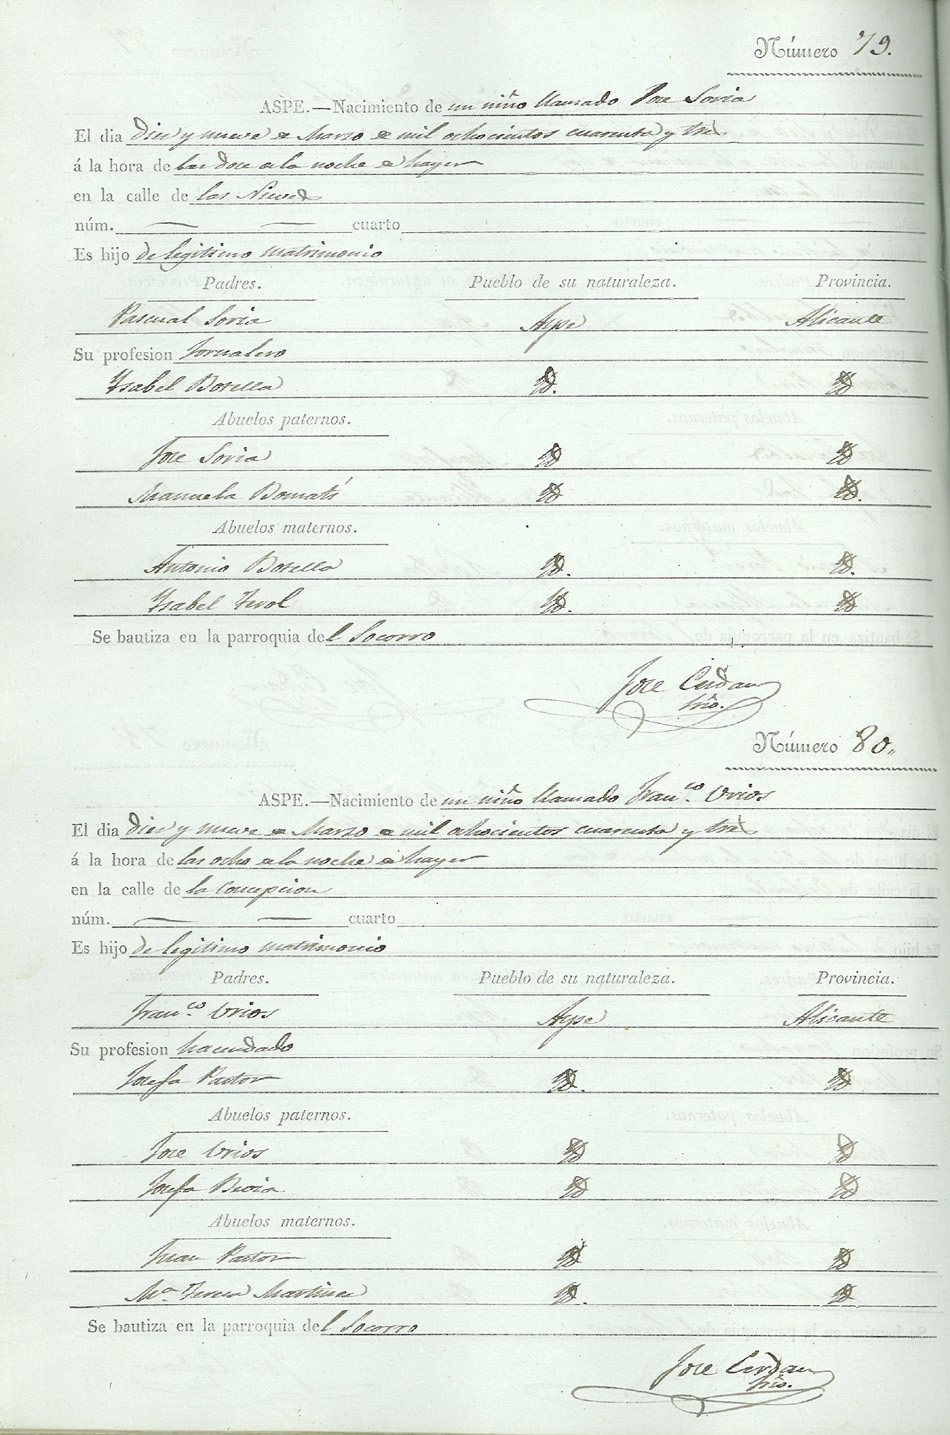 Número 79.
ASPE.—Nacimiento de un niño llamado Jose Soria
El dia diez y nueve de Marzo de mil ochocientos cuarenta y tres
á la hora de las doce de la noche de hayer
en la calle de las Nieves
núm. — — cuarto
Es hijo de legitimo matrimonio
Padres. Pueblo de su naturaleza. Provincia.
Pascual Soria Aspe Alicante
Su profesion Jornalero
Ysabel Botella Yd. Yd.
Abuelos paternos.
Jose Soria Yd Yd
Manuela Bomatí Yd Yd.
Abuelos maternos.
Antonio Botella Yd. Yd.
Ysabel Terol Yd. Yd
Se bautiza en la parroquia del Socorro
Jose Cerdan
Srio.
Número 80.
ASPE.—Nacimiento de un niño llamado Fran.co Urios
El dia diez y nueve de Marzo de mil ochocientos cuarenta y tres
á la hora de las ocho de la noche de hayer
en la calle de la Concepcion
núm. — — cuarto
Es hijo de legitimo matrimonio
Padres. Pueblo de su naturaleza. Provincia.
Fran.co Urios Aspe Alicante
Su profesion hacendado
Josefa Pastor Yd. Yd
Abuelos paternos.
Jose Urios Yd Yd
Josefa Yd Yd
Abuelos maternos.
Juan Pastor Yd Yd
Ma. Teresa Martinez Yd. Yd
Se bautiza en la parroquia del Socorro
Jose Cerdan
Srio.